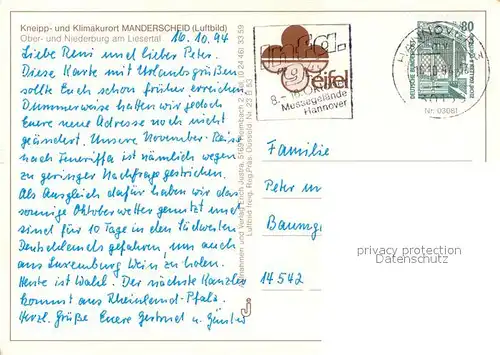 Kneipp- und Klimakurort MANDERSCHEID (Luftbild)
Ober- und Niederburg am Liesertal
16.10.94
Liebe Reni und lieber Peter.
Diese Karte mit Urlaubsgrüßen
sollte Euch schon früher erreichen
Dummerweise hatten wir jedoch
Eure neue Adresse noch nicht
geändert. Unsere November-Reise
nach Teneriffa ist nämlich wegen
zu geringer Nachfrage gestrichen.
Als Ausgleich dafür haben wir das
sonnige Oktoberwetter genutzt und
sind für 10 Tage in den Südwesten
Deutschlands gefahren, um auch
aus Luxemburg Wein zu holen.
Heute ist Wahl. Der nächste Kanzler
kommt aus Rheinland-Pfalz.
Herzl. Grüße Eure Gertrud u. Günter
Aufnahmen und Verlag Erich Justra,
Luftbild freig. Reg.Präs. Düsseld.
infa.
'94
eifel
Messegelände
Hannover
HANNOVER
80
DEUTSCHE BUNDESPOST
Nr. 03061
Familie
Peter
Baumg
14542
privacy protection
Datenschutz